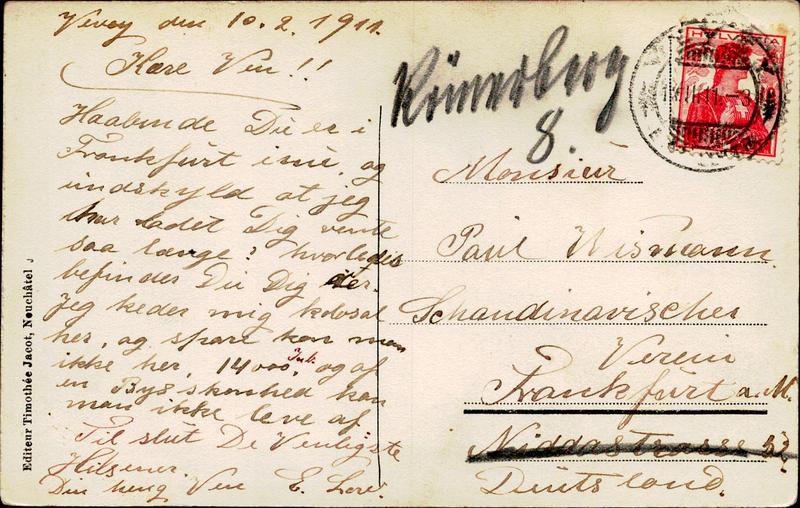 Vevey den 10.2.1911.
Kære Ven!!
Haabende Du er i
Frankfurt inu, og
undskyld at jeg
har ladet Dig vente
saa længe? hvorledes
befinder Du Dig der.
Jeg keder mig kolosal
her, og spare kan man
ikke her, 14000 Inb. og af
en Bys skonhed kan
man ikke leve af.
Til slut De Venligste
Hilsener.
Din heng Ven E.
Editeur Timothée Jacot, Neuchâtel
Römerberg
8.
HELVETIA
Monsieur
Paul Wismann.
Schandinavischer
Verein
Frankfurt a.M.
Niddastrasse 52
Deutsland.